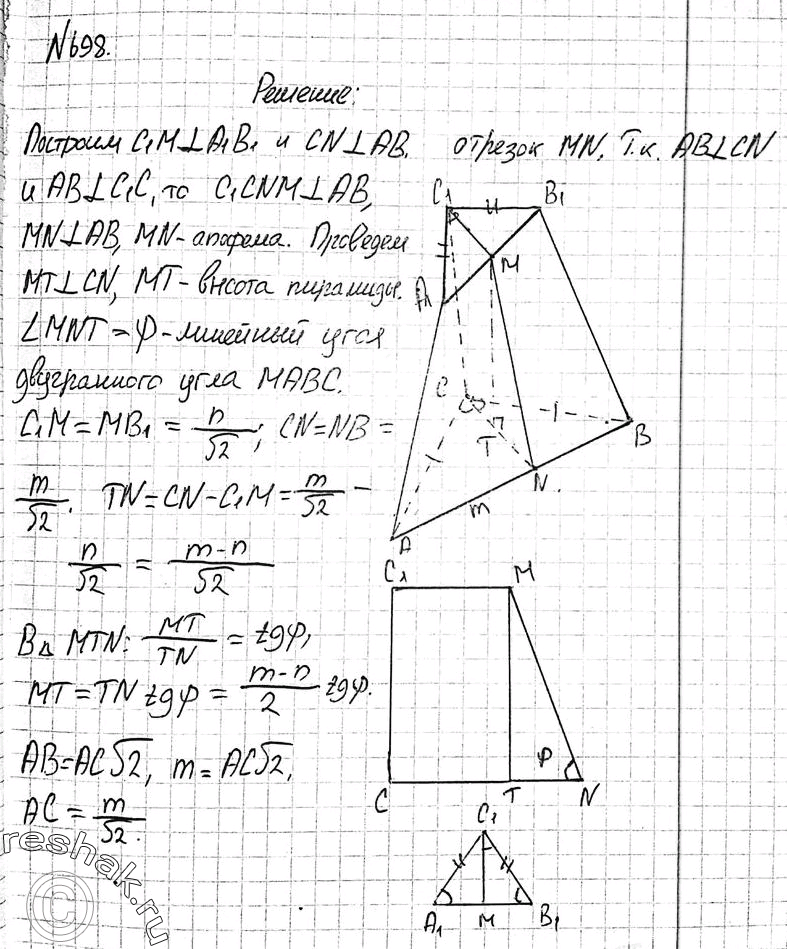 N698.
Решение:
Построим C₁M⊥A₁B₁ и CN⊥AB. отрезок MN. Т.к. AB⊥CN
и AB⊥C₁C, то C₁CNM⊥AB,
MN⊥AB, MN-апофема. Проведем
MT⊥CN, MT-высота пирамиды.
∠MNT=φ-линейный угол
двугранного угла MABC.
C₁M=MB₁=n/√2; CN=NB=
m/√2. TN=CN-C₁M=m/√2-
n/√2=(m-n)/√2
В△ MTN: MT/TN=tgφ,
MT=TN tgφ=(m-n)/2 tgφ.
AB=AC√2, m=AC√2,
AC=m/√2.
C₁ B₁
M
A₁
C
T B
N.
m
A
C₁ M
φ
C T N
C₁
A₁ M B₁
reshak.ru
©